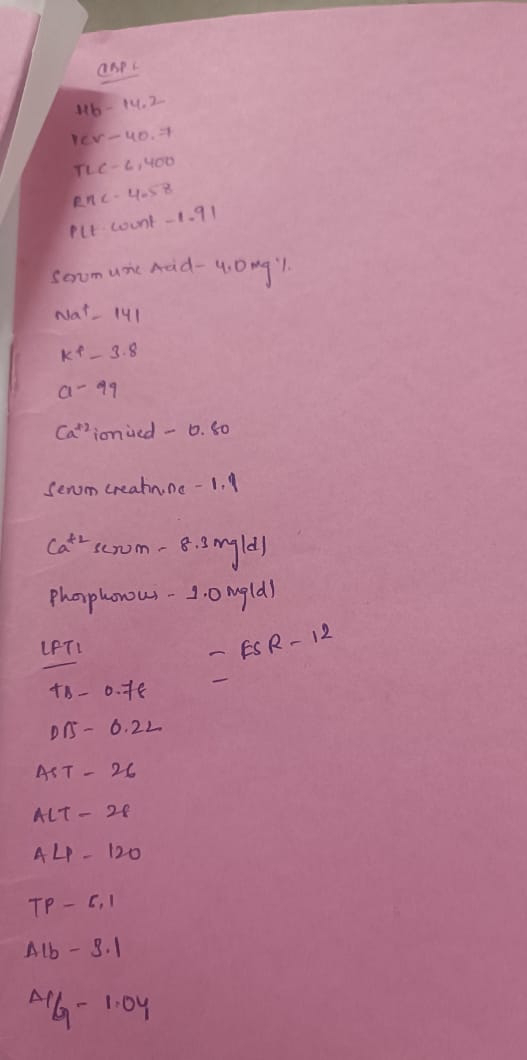 CBP:
Hb - 14.2
PCV - 40.7
TLC - 6,400
RBC - 4.58
PLt. count - 1.91
Serum uric Acid - 4.0 mg%.
Na+ - 141
K+ - 3.8
Cl - 99
Ca+2 ionized - 0.80
Serum creatinine - 1.1
Ca+2 serum - 8.3 mg/dl
Phosphorous - mg/dl
LFT: - ESR - 12
-
TB - 0.78
DB - 0.22
AST - 26
ALT - 28
ALP - 120
TP - 6.1
Alb - 3.1
A/G - 1.04